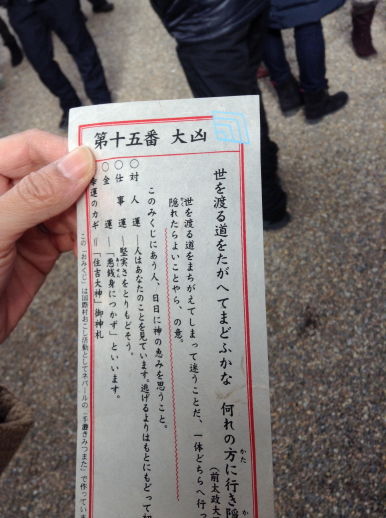 第十五番 大凶
世を渡る道をたがへてまどふかな 何れの方に行き隠
(前太政大
世を渡る道をまちがえてしまって迷うことだ、一体どちらへ行っ
隠れたらよいことやら、の意。
このみくじにあう人、日日に神の恵みを思うこと。
○対人運―人はあなたのことを見ています。逃げるよりはもとにもどって初
○仕事運―堅実さをとりもどそう。
○金運―「悪銭身につかず」といいます。
幸運のカギ=「住吉大神」御神札
この「おみくじ」は国際村おこし活動としてネパールの「手漉きみつまた」で作っていま